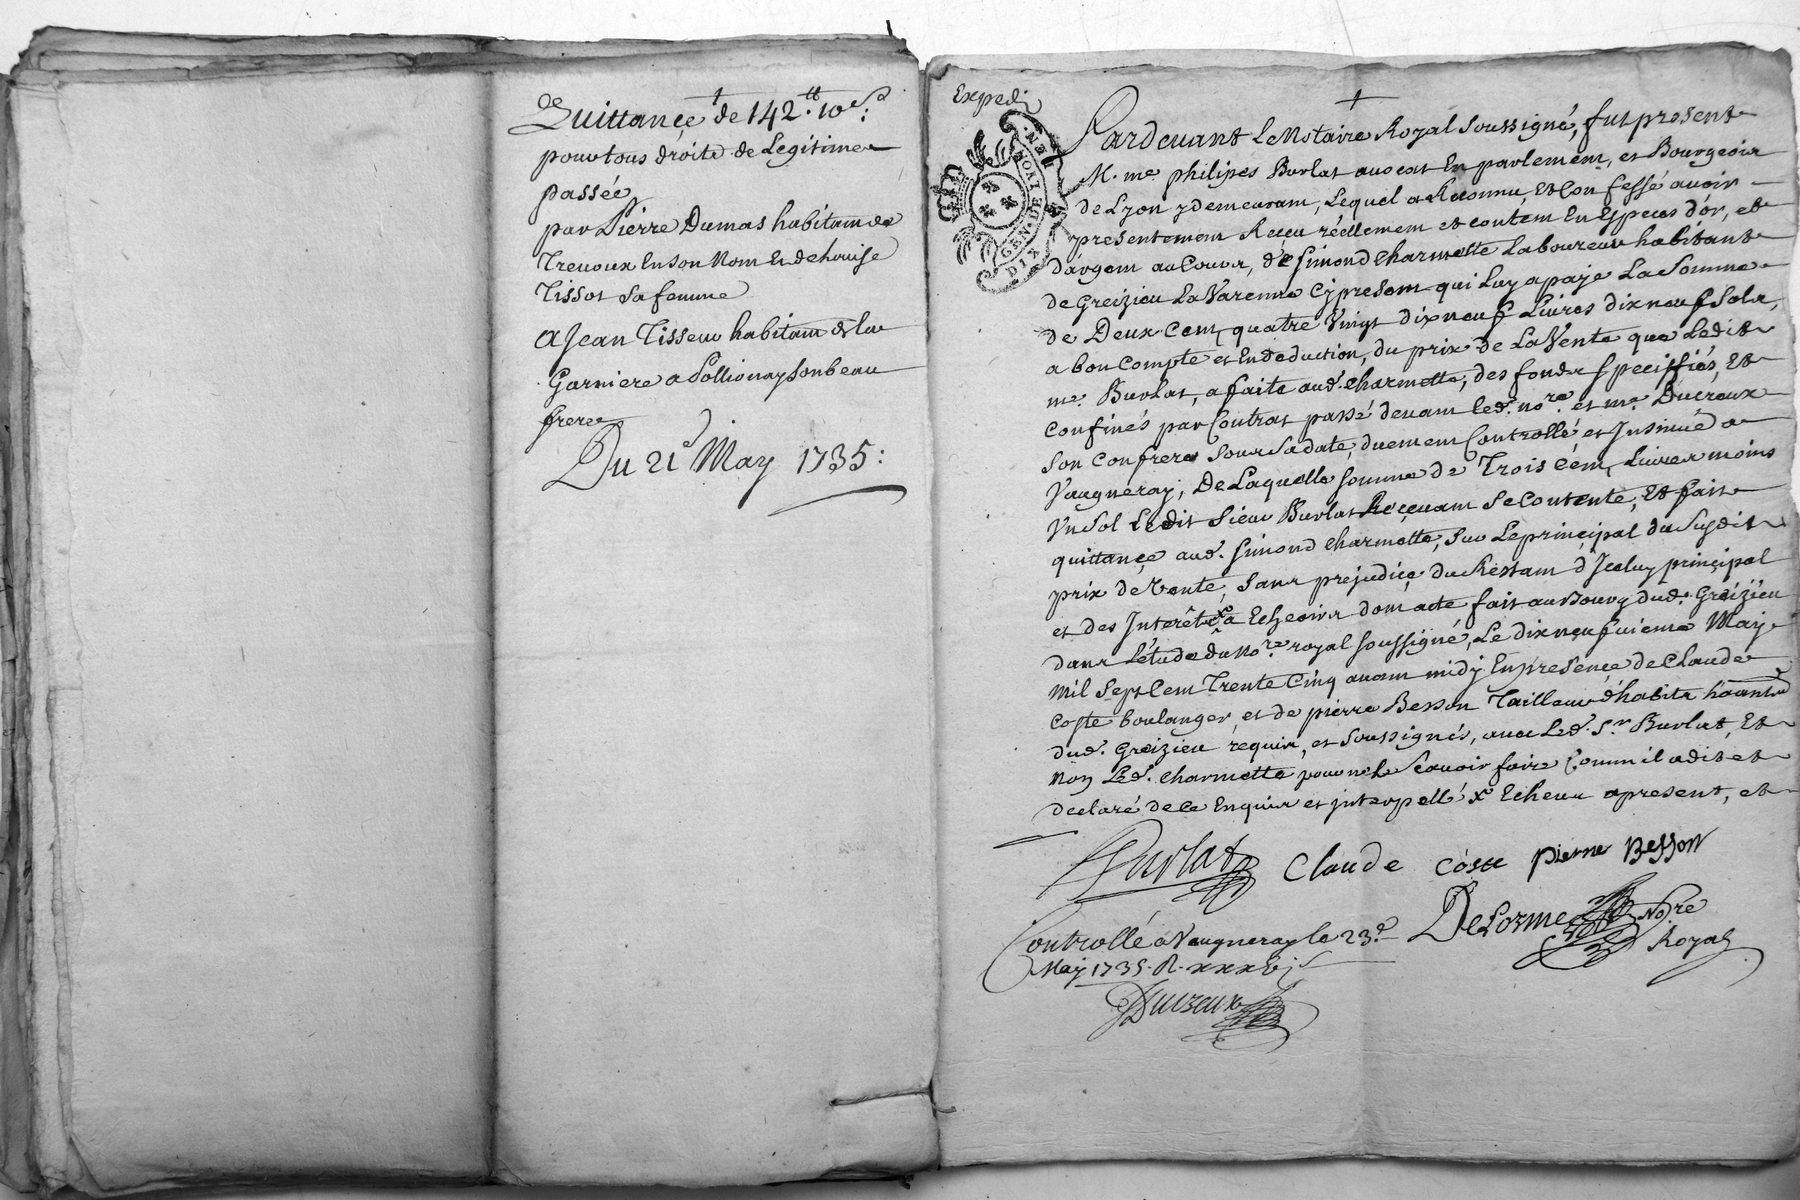 Quittance de 142.ᵗᵗ 10ˢ:
pour tous droits de Legitime
passée
par Pierre Dumas habitant de
Trevoux En son Nom Et de Louise
Tissot sa femme
A Jean Tisseur habitant de la
Garniere a Pollionay son beau
frere
Du 21ᵉ May 1735:
Expedi
GEN. DE LYON
MOY. EN.
DIX DEN
Pardevant Le Notaire Royal soussigné, fut present
M. mᵉ philipes Burlat avocat En parlement, et Bourgeois
de Lyon y demeurant, Lequel a Reconnu, Et Confessé avoir
presentement Reçeu réellement et contem En Especes d'or, et
d'argent au Cours, de simond charmette Laboureur habitant
de Greizieu La Varenne cy present qui Luy a payé La somme
de Deux Cent, quatre Vingt dix neuf Livres dix neuf sols,
a bon Compte et En deduction, du prix de La Vente que Ledit
mᵉ. Burlat, a faite aud. charmette, des fonds specifiés, Et
confinés par Contrat passé devant led. noʳᵉ et mᵉ Ducreux
son confrere sous sa date, duement Controllé et Insinué a
Vaugneray; De Laquelle somme de Trois Cent, Livres moins
Un sol Ledit sieur Burlat Reçevant se contente, Et fait
quittançe aud. simond charmette, sur Le prinçipal du susdit
prix de vente, sans prejudiçe du Restant d'Iceluy prinçipal
et des Interêts x a Echeoir dont acte fait au Bourg dud. Greizieu
dans L'étude du Noʳᵉ royal soussigné, Le dixneufvieme May
mil sept Cent Trente Cinq avant midy En presençe de Claude
Coste boulanger, et de pierre Besson Tailleur d'habits habitants
dud. Greizieu requis, et soussignés, avec Led. Sʳ Burlat, Et
Non Led. charmette pour ne le sçavoir faire Comm il a dit et
declaré de ce Enquis et interpellé x Echeus a present, et
Burlat Claude Coste pierre Besson
DeLorme No.re
Royal
Controllé a Vaugneray le 23ᵉ
May 1735. R. xxxvjˢ
Ducreux